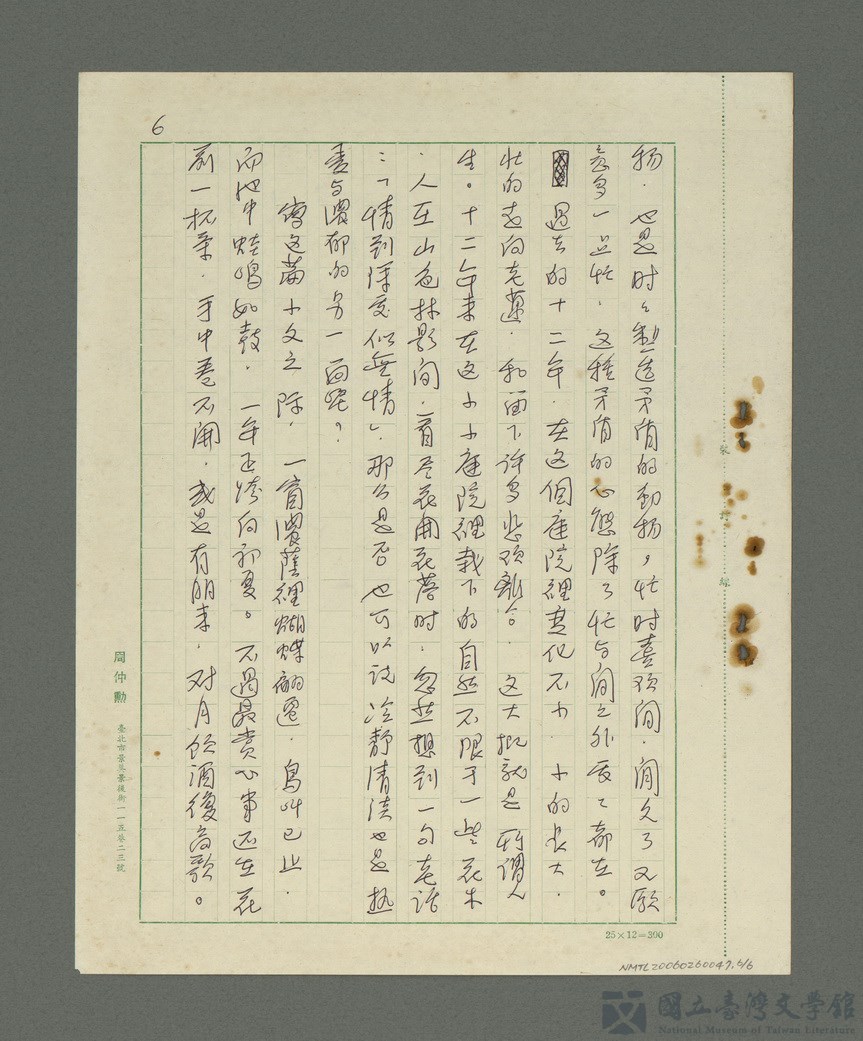 6
物．也是时々製造矛盾的動物，忙时喜欢闲．闲久了又願
意多一点忙．这種矛盾的心態除了忙与闲之外處々都在。
过去的十二年．在这個庭院裡变化不小．小的長大．
壯的走向老邁．和留下许多悲欢離合．这大概就是所谓人
生。十二年来在这小小庭院裡栽下的自然不限于一些花木
．人在山色林影间．看尽花開花落时．忽然想到一句老話
：「情到深处似無情」．那么是否也可以说冷静清淡也是热
烈与濃郁的另一面呢？．
寫这篇小文之际．一窗濃蔭裡蝴蝶翩翩．鳥叫已止．
而池中蛙鳴如鼓．一年正将向初夏。不過最賞心事还在花
前一杯茶．手中卷不開．或是有朋来．对月飲酒復高歌。
周仲勳
臺北市景美景後街一一五巷二三號
25×12=300
裝 訂 線
NMTL20060260047.6/6
國立臺灣文學館
National Museum of Taiwan Literature